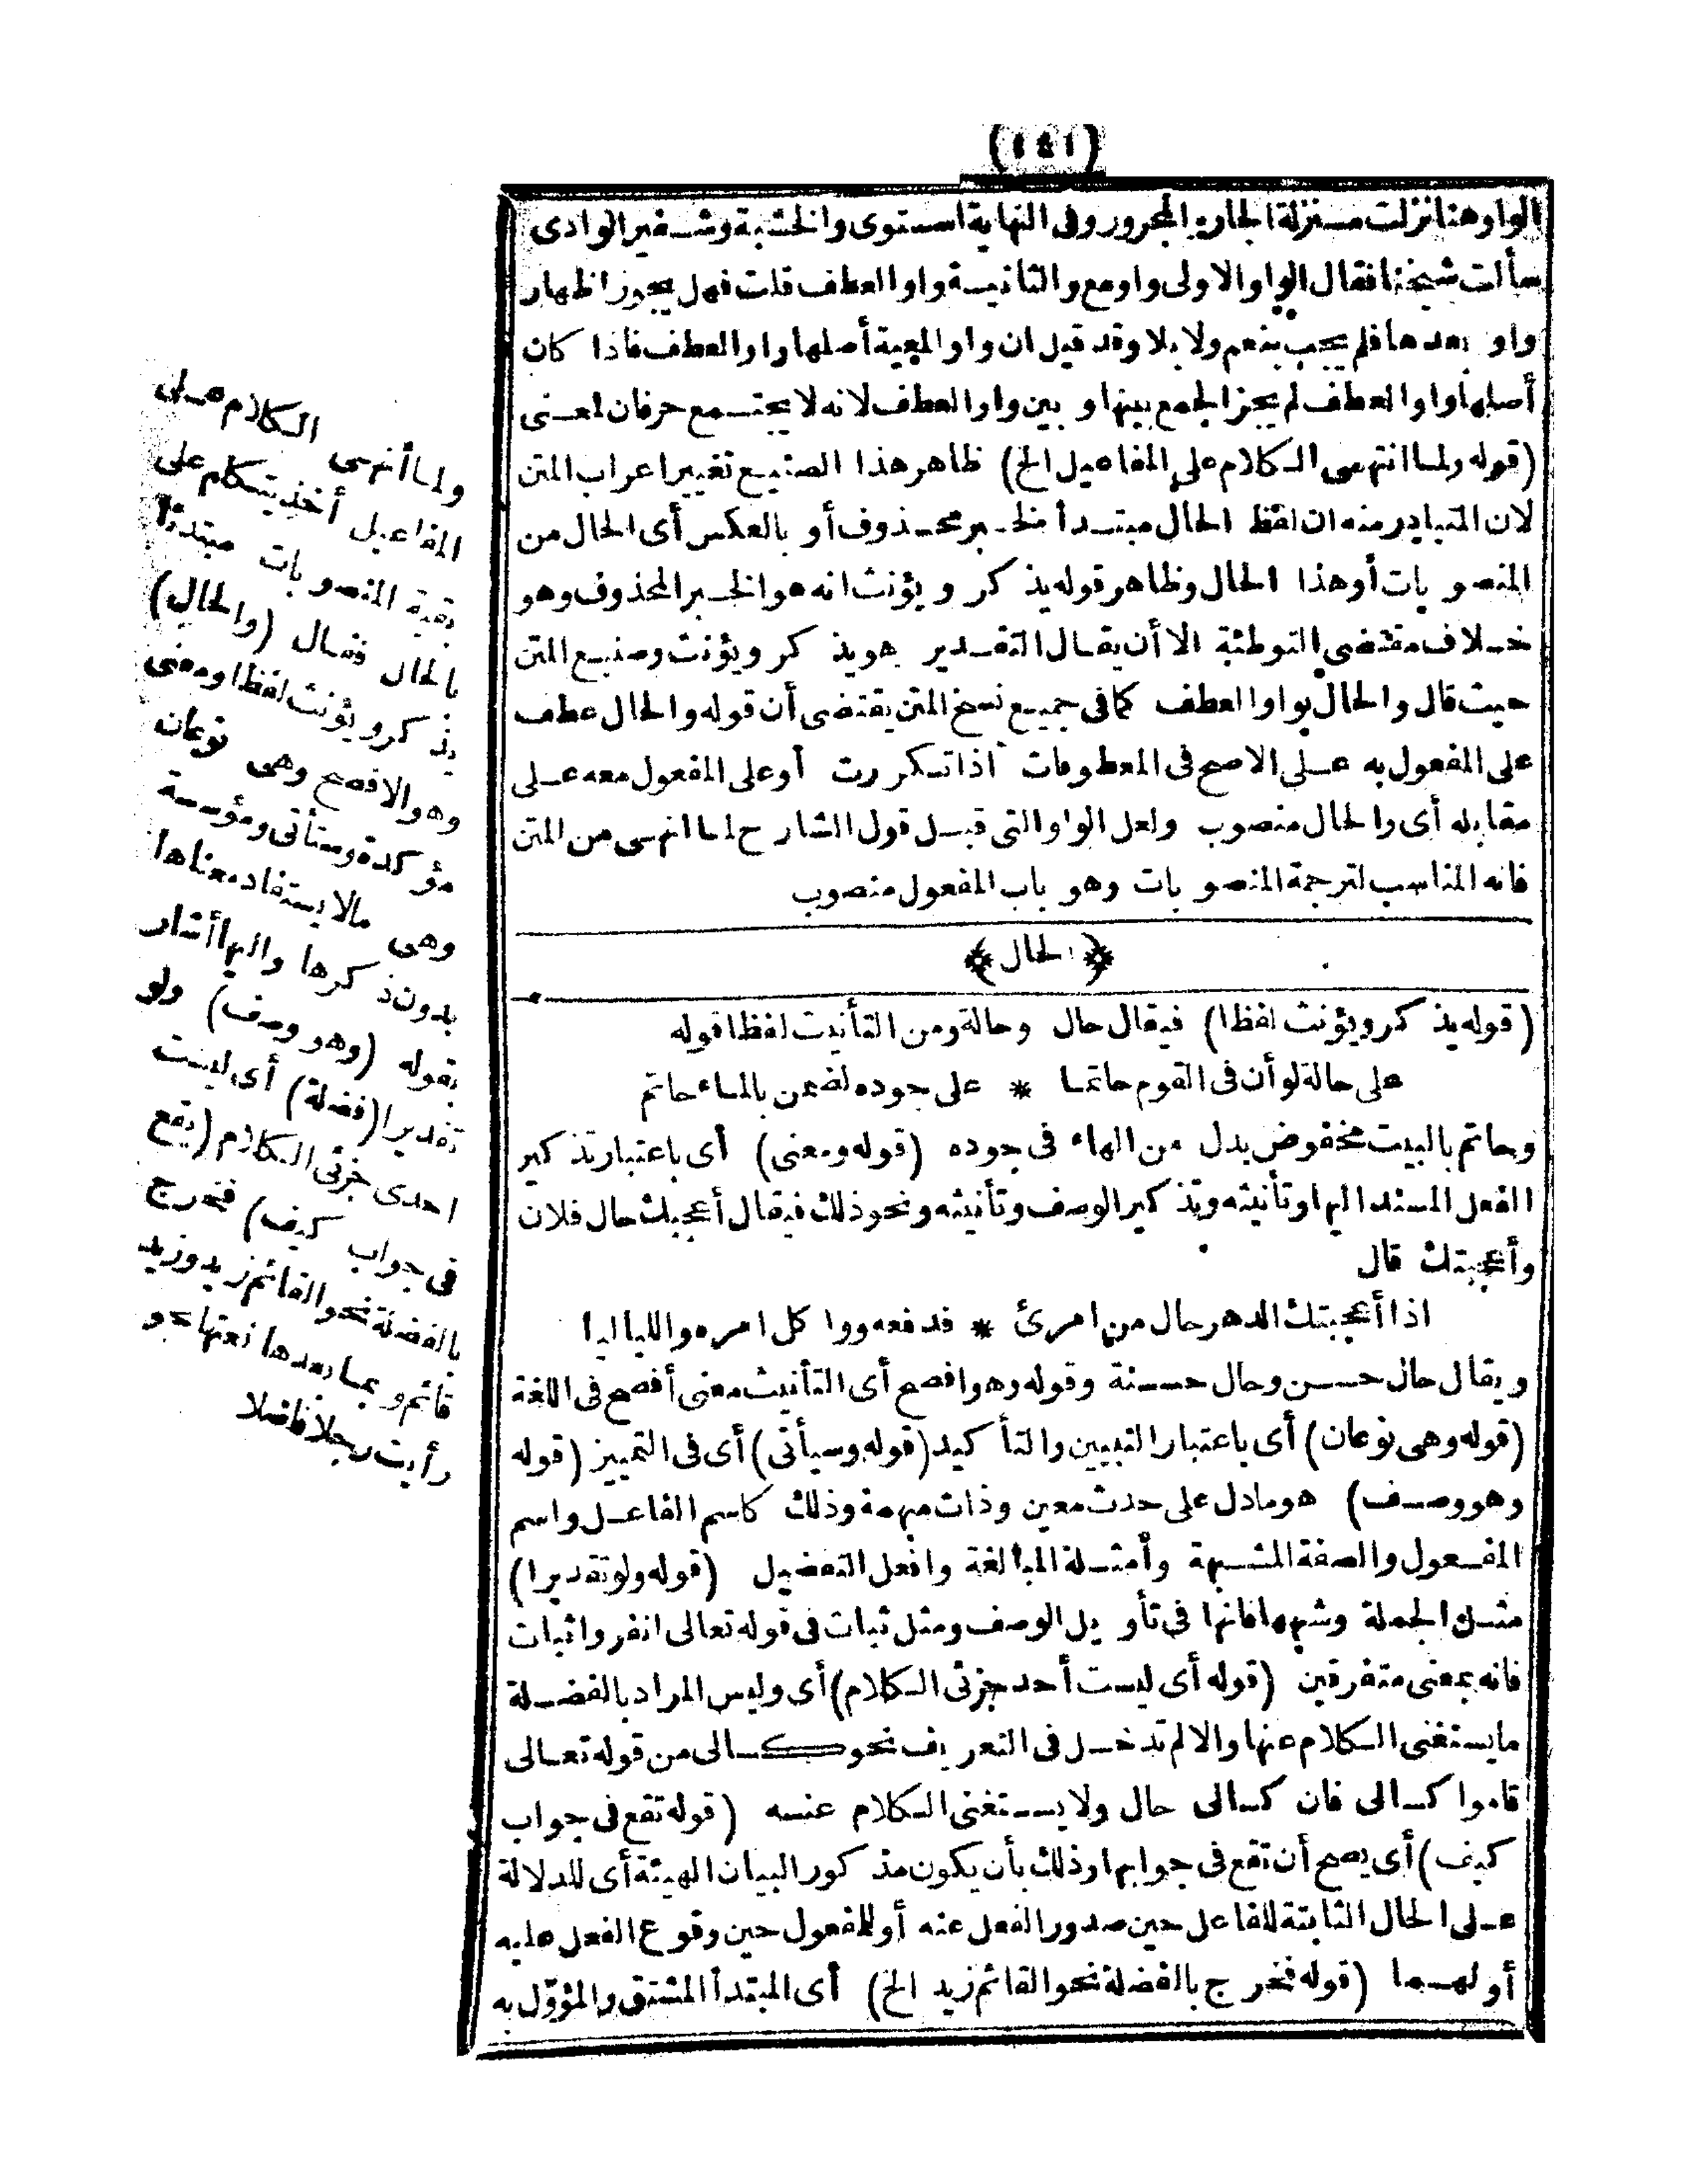 (١٤١)
الواو هنا نزلت منزلة الجار والمجرور وفى النهاية استوى والخشبة وشفير الوادى
سألت شيخنا فقال الواو الاولى واو مع والثانية واو العطف قلت فهل يجوز اظهار
واو بعدها فلم يجب بنعم ولا بلا وقد قيل ان واو المعية أصلها واو العطف فاذا كان
أصلها واو العطف لم يجز الجمع بينها و بين واو العطف لانه لا يجتمع حرفان لمعنى
(قوله ولما انتهى الكلام على المفاعيل الخ) ظاهر هذا الصنيع تغيير اعراب المتن
لان المتبادر منه ان لفظ الحال مبتدأ لخبر محذوف أو بالعكس أى الحال من
المنصو بات أو هذا الحال وظاهر قوله يذ كر و يؤنث انه هو الخبر المحذوف وهو
خلاف مقتضى التوطئة الا أن يقال التقدير هو يذ كر و يؤنث وصنيع المتن
حيث قال والحال بواو العطف كما فى جميع نسخ المتن يقتضى أن قوله والحال عطف
على المفعول به على الاصح فى المعطوفات اذا تكررت أو على المفعول معه على
مقابله أى والحال منصوب ولعل الواو التى قبل قول الشارح لما انهى من المتن
فانه المناسب لترجمة المنصو بات وهو باب المفعول منصوب
﴿الحال﴾
(قوله يذ كر ويؤنث لفظا) فيقال حال وحالة ومن التأنيث لفظا قوله
على حالة لو أن فى القوم حاتما * على جوده لضمن بالماء حاتم
وحاتم بالبيت مخفوض بدل من الهاء فى جوده (قوله ومعنى) أى باعتبار تذ كير
الفعل المسند اليها وتأنيثه وتذ كير الوصف وتأنيثه ونحو ذلك فيقال أعجبك حال فلان
وأعجبتك قال
اذا أعجبتك الدهر حال من امرئ * فدعه ووا كل امره واللياليا
ويقال حال حسن وحال حسنة وقوله وهو افصح أى التأنيث معنى أفصح فى اللغة
(قوله وهى نوعان) أى باعتبار التبيين والتأ كيد (قوله وسيأتى) أى فى التمييز (قوله
وهو وصف) هو مادل على حدث معين وذات مبهمة وذلك كاسم الفاعل واسم
المفعول والصفة المشبهة وأمثلة المبالغة وافعل التفضيل (قوله ولو تقديرا)
مثل الجملة وشبهها فانها فى تأو يل الوصف ومثل ثبات فى قوله تعالى انفروا ثبات
فانه بمعنى متفرقين (قوله أى ليست أحد جزئى الكلام) أى وليس المراد بالفضلة
ما يستغنى الكلام عنها والا لم تدخل فى التعريف نحو كسالى من قوله تعالى
قاموا كسالى فان كسالى حال ولا يستغنى الكلام عنه (قوله تقع فى جواب
كيف) أى يصح أن تقع فى جوابها وذلك بأن يكون مذ كورا لبيان الهيئة أى للدلالة
على الحال الثابتة للفاعل حين صدور الفعل عنه أو للمفعول حين وقوع الفعل عليه
أو لهما (قوله نفخرج بالفضلة نحو القائم زيد الخ) أى المبتدأ المشتق والمؤوّل به
ولما أنهى الكلام على
المفاعيل أخذ يتكلم على
بقية المنصو بات مبتدئا
بالحال فقال (والحال)
يذ كر و يؤنث لفظا ومعنى
وهو الافصح وهى نوعان
مؤكدة وستأتى ومؤسسة
وهى مالا يستفاد معناها
بدون ذ كرها واليها أشار
بقوله (وهو وصف) ولو
تقديرا (فضلة) أى ليست
احدى جزئى الكلام (يقع
فى جواب كيف) فخرج
بالفضلة نحو القائم زيد وزيد
قائم و بما بعدها نعتها نحو
رأيت رجلا فاضلا